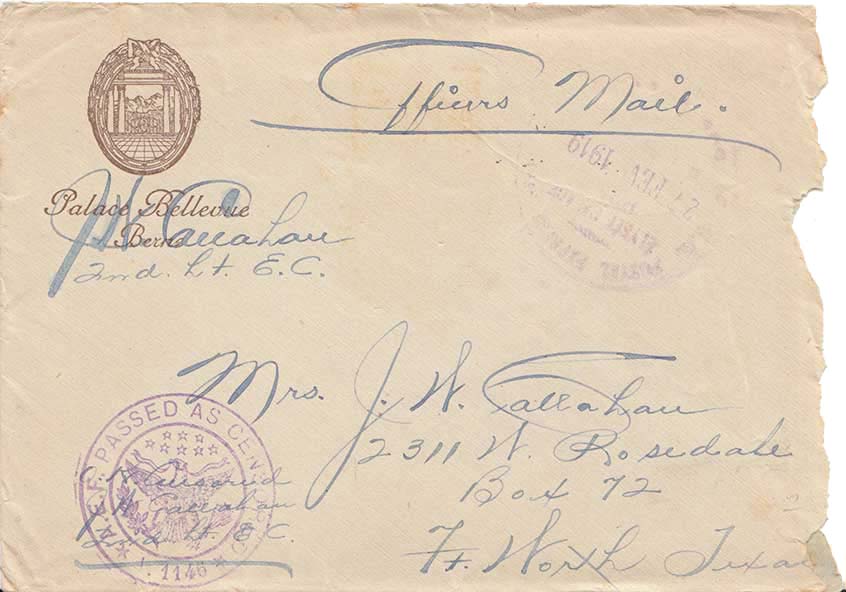 Officers Mail.
Palace Bellevue
Berne
Callahan
2nd. Lt. E.C.
1919
POSTAL
Mrs. J. W. Callahan
2311 W. Rosedale
Box 72
Ft. Worth Texas
A.E.F. PASSED AS CENSORED
Censored
Callahan
2nd Lt. E.C.
1146